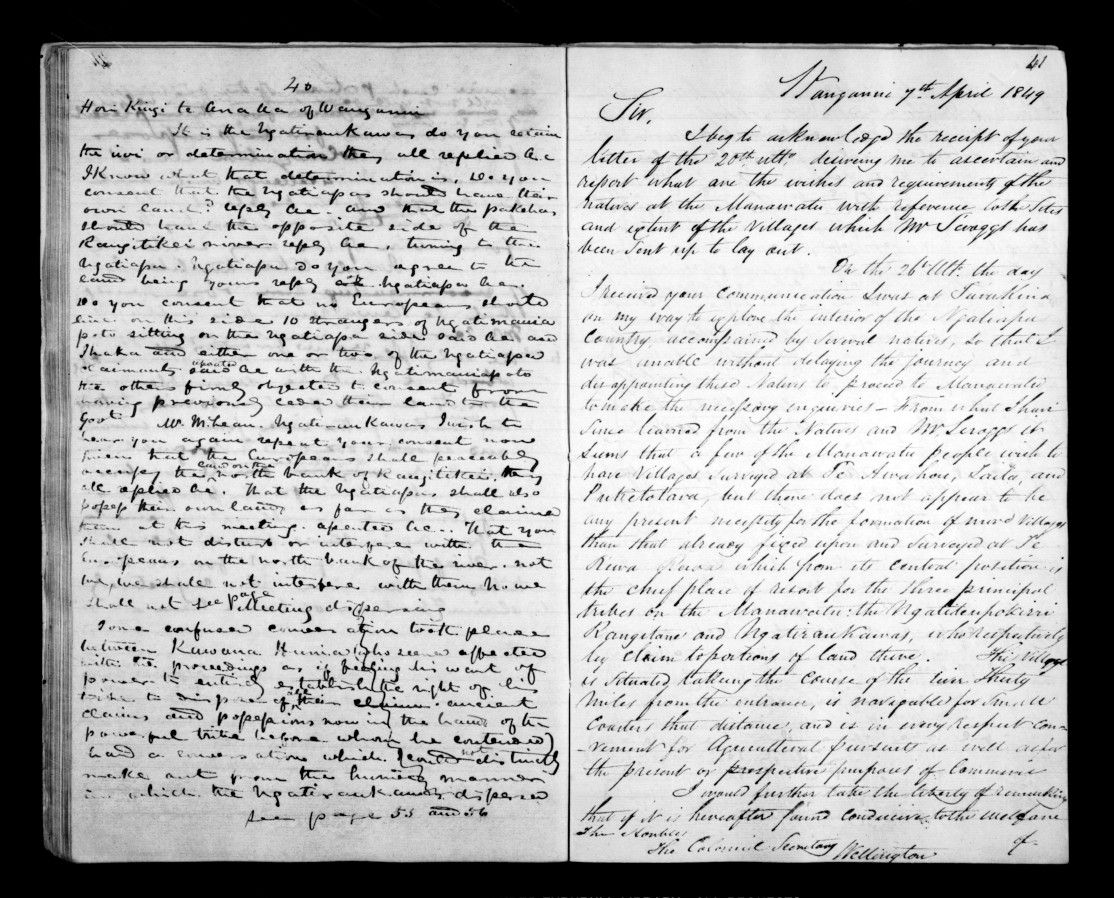 40
Honi Kingi te Anaua of Wanganui
It is the Ngatiraukawas do you retain
the iwi or determination they all replied &c
I know what that determination is. Do you
consent that the Ngatiapas should have their
own land? reply &c. and that the pakehas
should have the opposite side of the
Rangitikei river reply &c, turning to the
Ngatiapa. Ngatiapa do you agree to the
land being yours reply Ngatiapa &c
Do you consent that no Europeans should
live on this side. 10 strangers of Ngatimania
poto sitting on the Ngatiapa side said &c and
Ihaka and either one or two of the Ngatiapa
claimants repeated &c with the Ngatimaniapoto
the others firmly objected to consent from
having previously ceded their land to the
Govt Mr. McLean. Ngatiraukawas I wish to
hear you again repeat your consent now
that the Europeans shall peaceably
occupy the land on the north bank of Rangitikei, they
all replied &c. That the Ngatiapas shall also
possess their own land as far as they claimed
them at this meeting. assented &c. That you
shall not disturb or interfere with the
Europeans on the north bank of the river. not
we, we shall not interfere with them No we
shall not see page Meeting dispersing
some confused conversation took place
between Kawana Hunia who seemed affected
with the proceedings as if feeling his want of
power to entirely establish the right of his
tribe to dispose of all their claims. ancient
claims and possessions now in the hands of the
powerful tribe before whom he contended
had a conversation which I could not distinctly
make out from the hurried manner
in which the Ngatiraukawas dispersed
see page 55 and 56
41
Wanganui 7th April 1849
Sir,
I beg to acknowledge the receipt of your
letter of the 20th ulto. desiring me to ascertain and
report what are the wishes and requirements of the
natives at the Manawatu with reference to the sites
and extent of the Villages which Mr Scroggs has
been sent up to lay out.
On the 26th Ult. the day
I received your communication I was at Turakina
on my way to explore the interior of the Ngatiapa
Country, accompanied by several natives, so that I
was unable without delaying the journey and
disappointing these Natives to proceed to Manawatu
to make the necessary enquiries – From what I have
since learned from the Natives and Mr. Scroggs it
seems that a few of the Manawatu people wish to
have Villages surveyed at Te Awahou, and
Puketotara, but there does not appear to be
any present necessity for the formation of more Villages
than that already fixed upon and surveyed at Te
Rewa which from its central position is
the chief place of resort for the three principal
tribes on the Manawatu: the
Rangitane and Ngatiraukawas, who respectively
lay claim to portions of land there. This Village
is situated taking the course of the river thirty
miles from the entrance, is navigable for small
Coasters that distance, and is in every respect con-
-venient for Agricultural pursuits as well as for
the present or prospective purposes of Commerce
I would further take the liberty of remarking
that if it is hereafter found conducive to the welfare
of
The Honble
The Colonial Secretary
Wellington